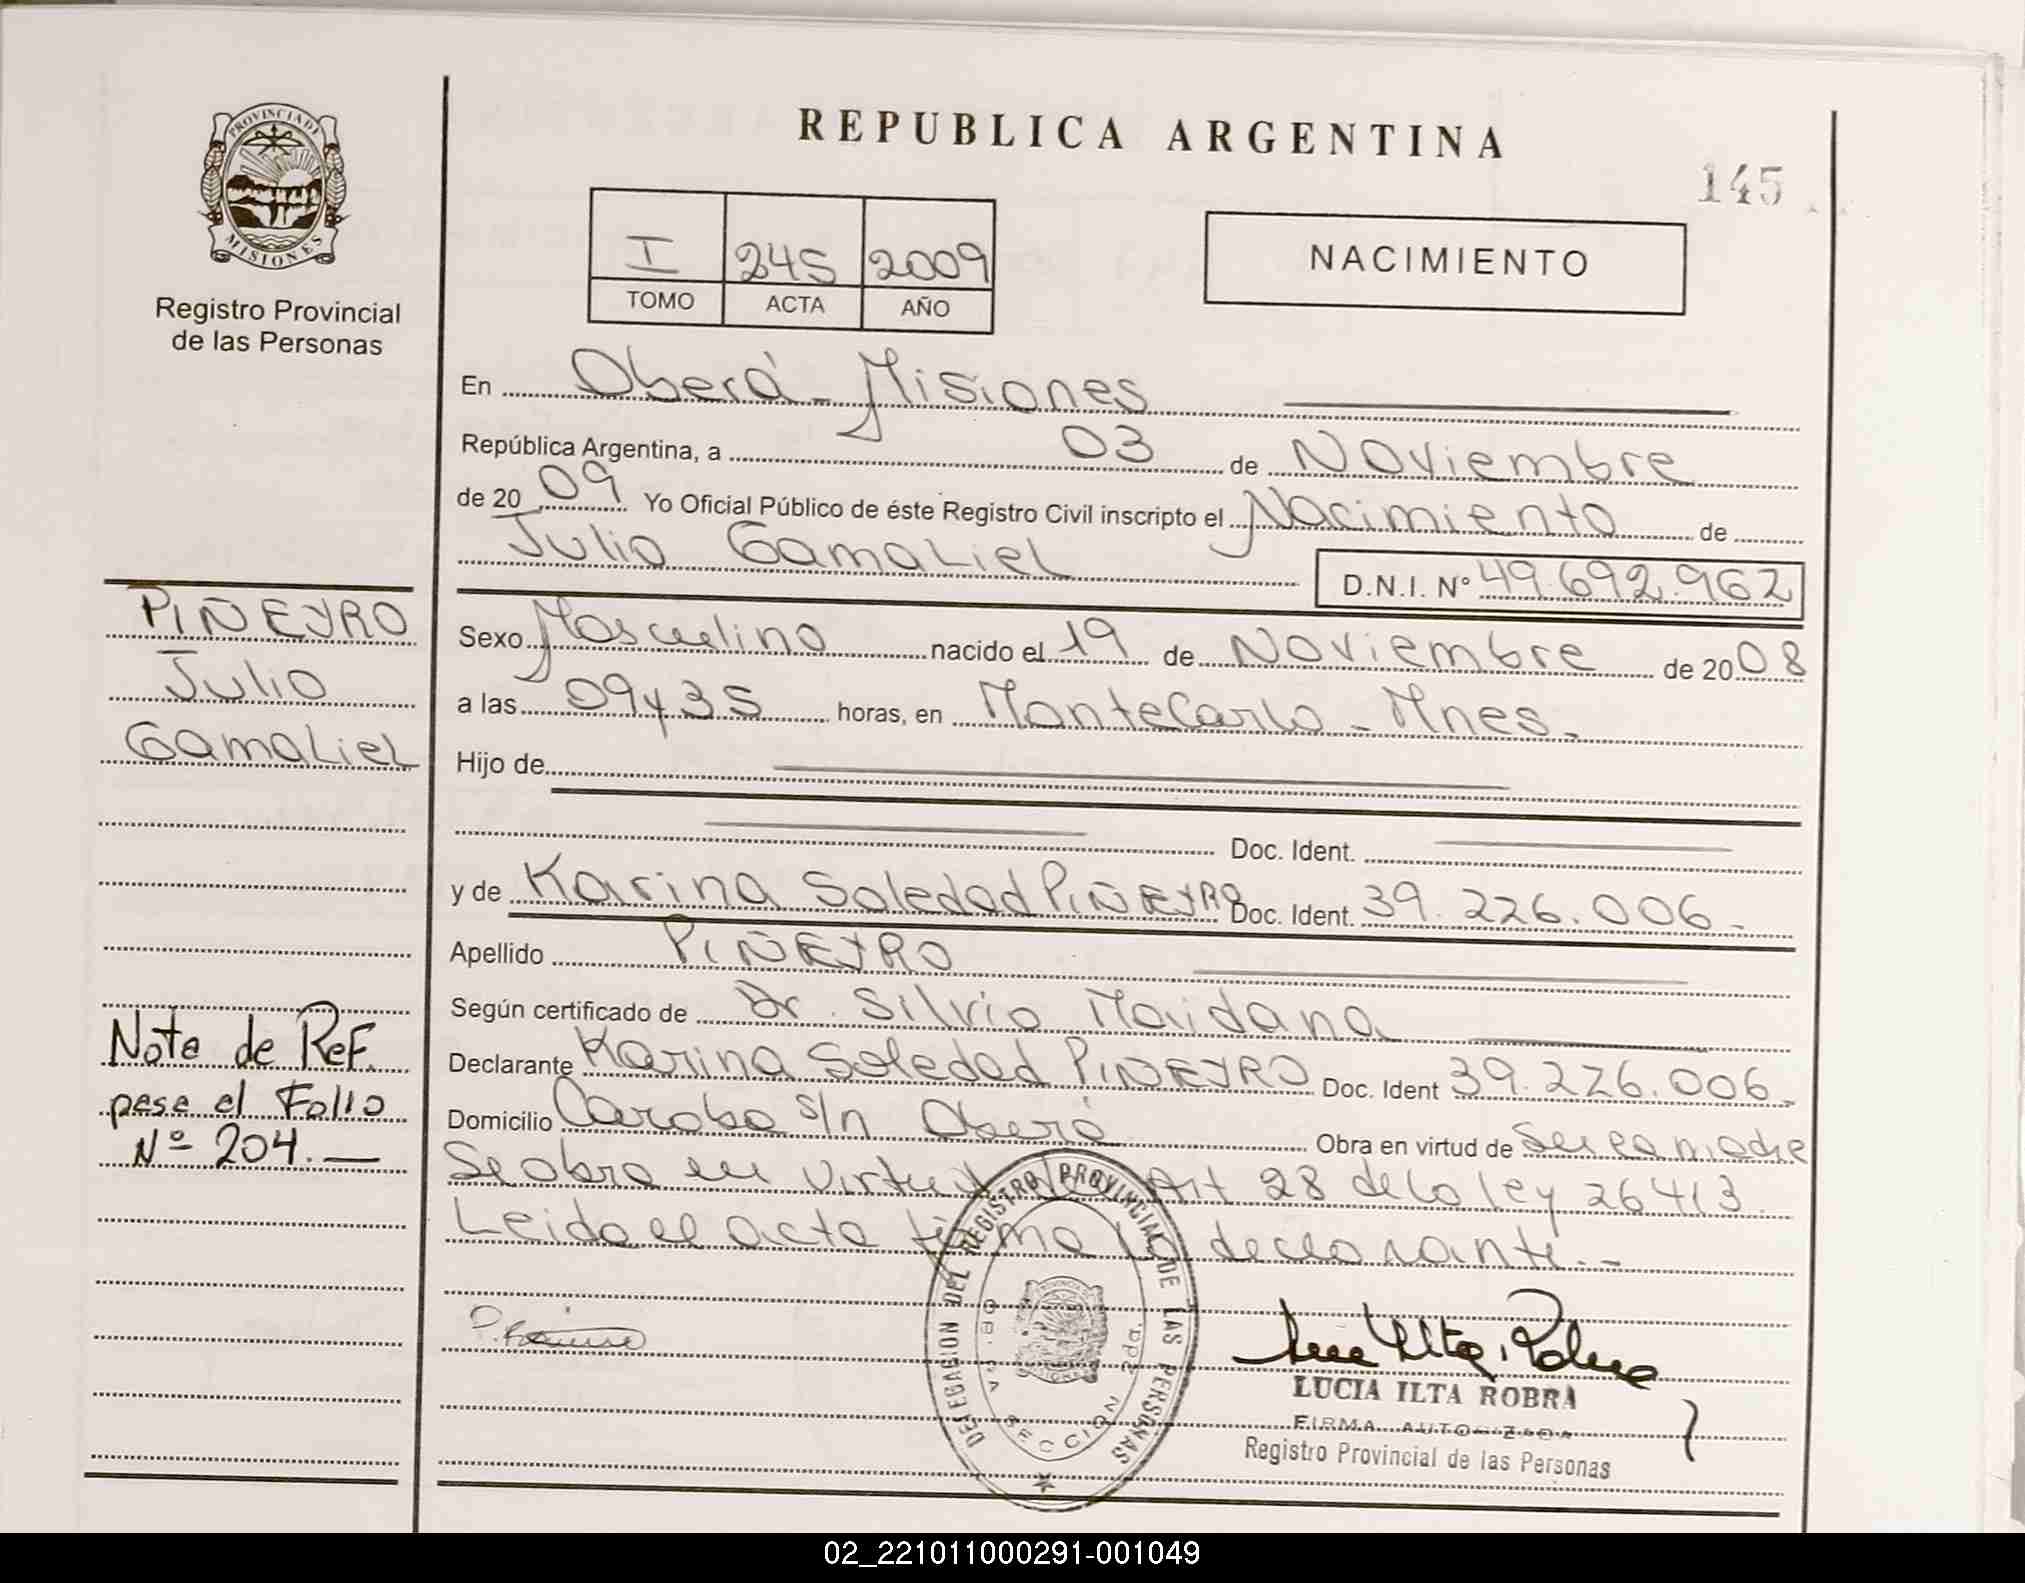 REPUBLICA ARGENTINA
145
PROVINCIA DE
MISIONES
Registro Provincial
de las Personas
I 245 2009
TOMO ACTA AÑO
NACIMIENTO
En Oberá - Misiones
República Argentina, a 03 de Noviembre
de 2009 Yo Oficial Público de éste Registro Civil inscripto el Nacimiento de
Julio Gamaliel D.N.I. Nº 49.692.962
PIÑEYRO
Julio
Gamaliel
Sexo Masculino nacido el 19 de Noviembre de 2008
a las 09 y 35 horas, en Montecarlo - Mnes.
Hijo de
Doc. Ident.
y de Karina Soledad PIÑEYRO Doc. Ident. 39.226.006.-
Apellido PIÑEYRO
Según certificado de Dr. Silvio Maidana
Declarante Karina Soledad PIÑEYRO Doc. Ident 39.226.006.-
Domicilio s/n Oberá Obra en virtud de Ser la madre
Se obra en virtud Art 28 de la ley 26413
Leida el acta firma la declarante.-
Nota de Ref.
pase al Folio
Nº 204.-
DELEGACION DEL REGISTRO PROVINCIAL DE LAS PERSONAS
SECCION 2da.
LUCIA ILTA ROBRA
FIRMA AUTORIZADA
Registro Provincial de las Personas
02_221011000291-001049